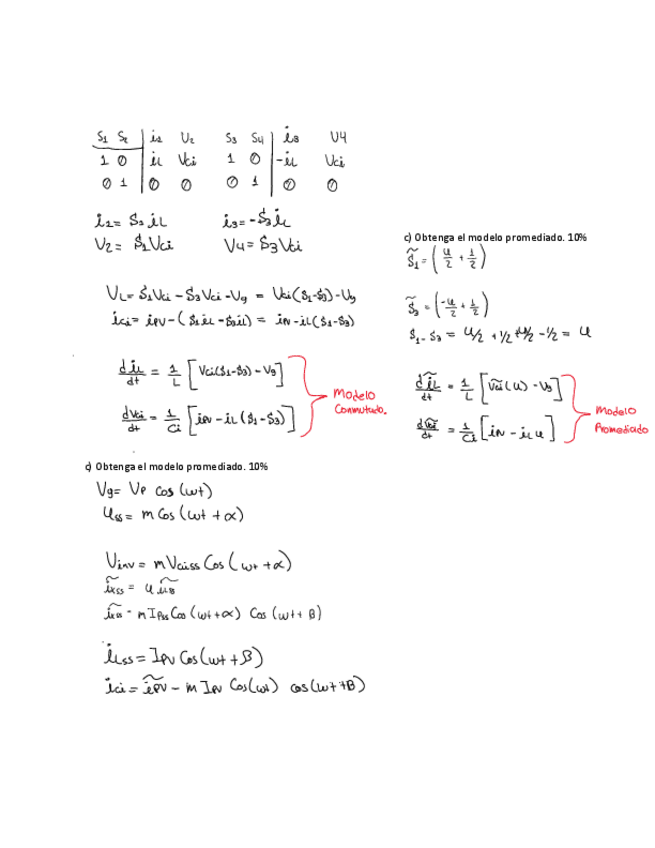 S1 S2 | i2 V2 S3 S4 | i3 V4
1 0 | iL Vci 1 0 | -iL Vci
0 1 | 0 0 0 1 | 0 0
i2 = S1 iL
i3 = -S3 iL
V2 = S1 Vci
V4 = S3 Vci
VL = S1Vci - S3Vci - Vg = Vci(S1-S3) - Vg
ici = ipv - (S1iL - S3iL) = ipv - iL(S1-S3)
diL/dt = 1/L [Vci(S1-S3) - Vg]
dVci/dt = 1/Ci [ipv - iL(S1-S3)]
Modelo
Conmutado.
c) Obtenga el modelo promediado. 10%
S̃1 = (u/2 + 1/2)
S̃3 = (-u/2 + 1/2)
S1 - S3 = u/2 + 1/2 + u/2 - 1/2 = u
dĩL/dt = 1/L [Ṽci(u) - Vg]
dṼci/dt = 1/Ci [ipv - iL u]
Modelo
Promediado
c) Obtenga el modelo promediado. 10%
Vg = Vp cos(wt)
uss = m Cos(wt + α)
Vinv = m Vciss Cos(wt + α)
ĩxss = u
m Ipss Cos(wt+α) Cos(wt+ B)
iLss = Ipv Cos(wt + B)
ici = ĩpv - m Ipv Cos(wt) cos(wt+B)